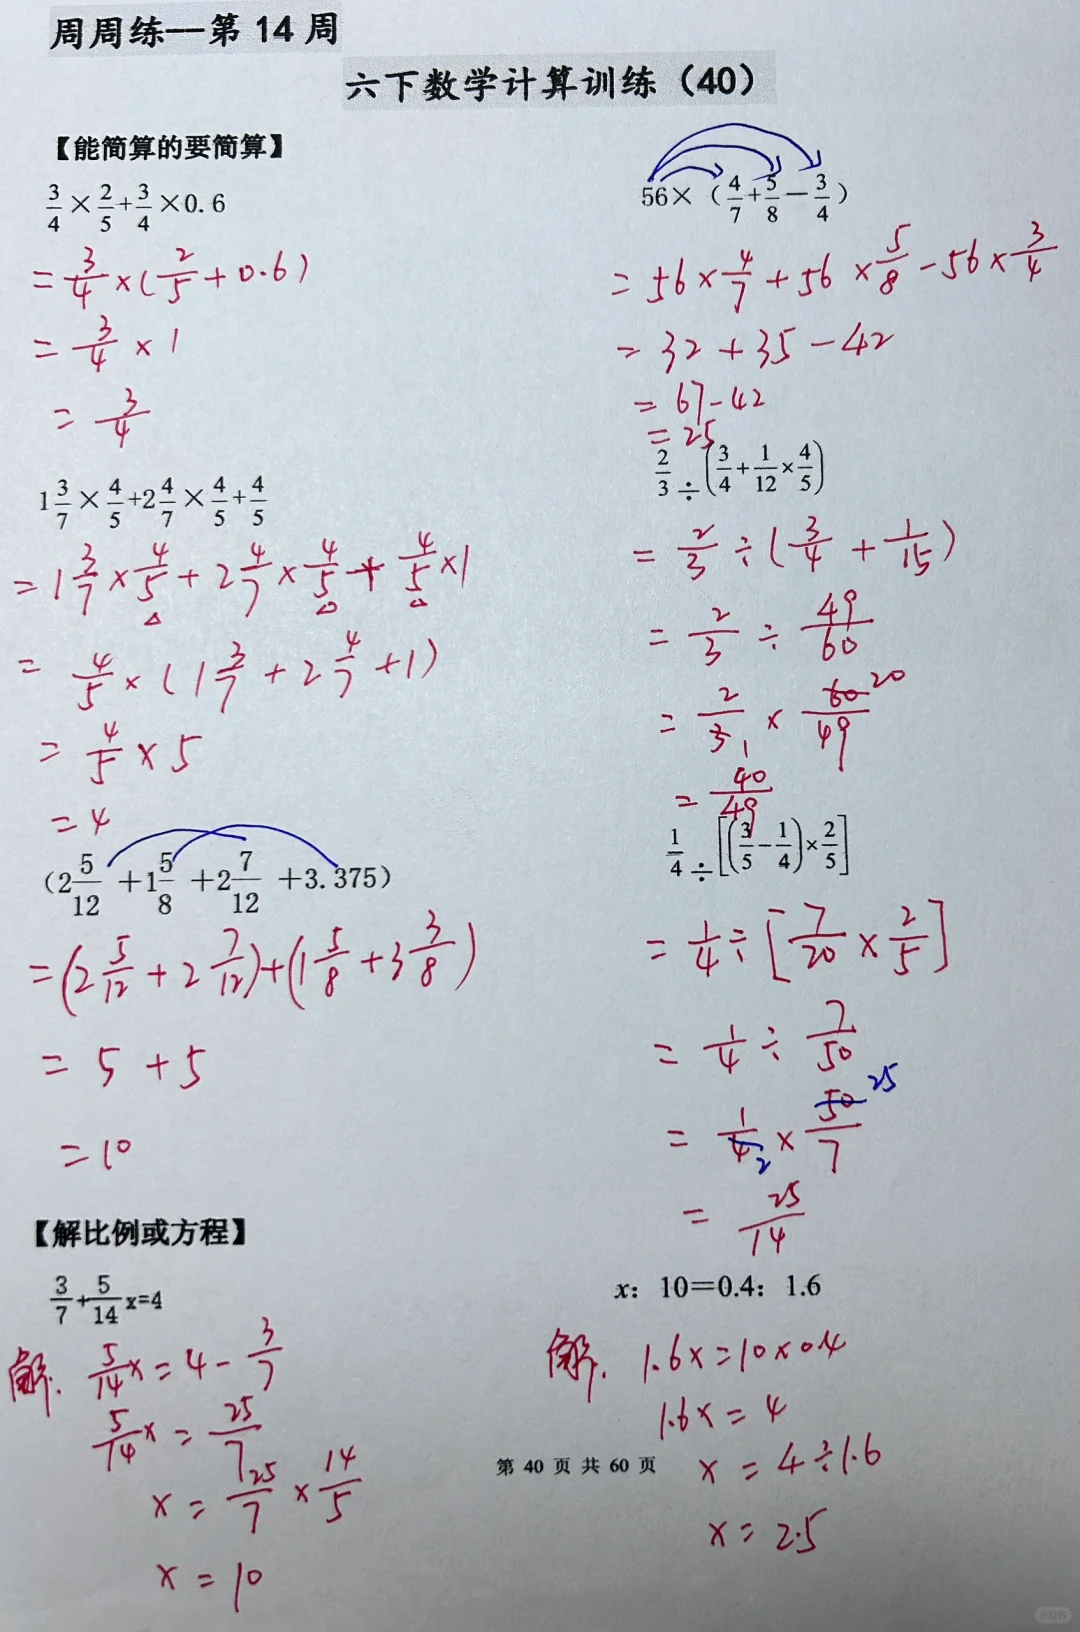 周周练——第 14 周
六下数学计算训练（40）
【能简算的要简算】
3/4×2/5+3/4×0.6
=3/4×(2/5+0.6)
=3/4×1
=3/4
1 3/7×4/5+2 4/7×4/5+4/5
=1 3/7×4/5+2 4/7×4/5+4/5×1
=4/5×(1 3/7+2 4/7+1)
=4/5×5
=4
（2 5/12+1 5/8+2 7/12+3.375）
=(2 5/12+2 7/12)+(1 5/8+3 3/8)
=5+5
=10
56×（4/7+5/8-3/4）
=56×4/7+56×5/8-56×3/4
=32+35-42
=67-42
=25
2/3÷(3/4+1/12×4/5)
=2/3÷(3/4+1/15)
=2/3÷49/60
=2/3×60/49 1 20
=40/49
1/4÷[(3/5-1/4)×2/5]
=1/4÷[7/20×2/5]
=1/4÷7/50
=1/4×50/7 2 25
=25/14
【解比例或方程】
3/7+5/14x=4
解. 5/14x=4-3/7
5/14x=25/7
x=25/7×14/5
x=10
x：10=0.4：1.6
解. 1.6x=10×0.4
1.6x=4
x=4÷1.6
x=2.5
第 40 页 共 60 页
小红书